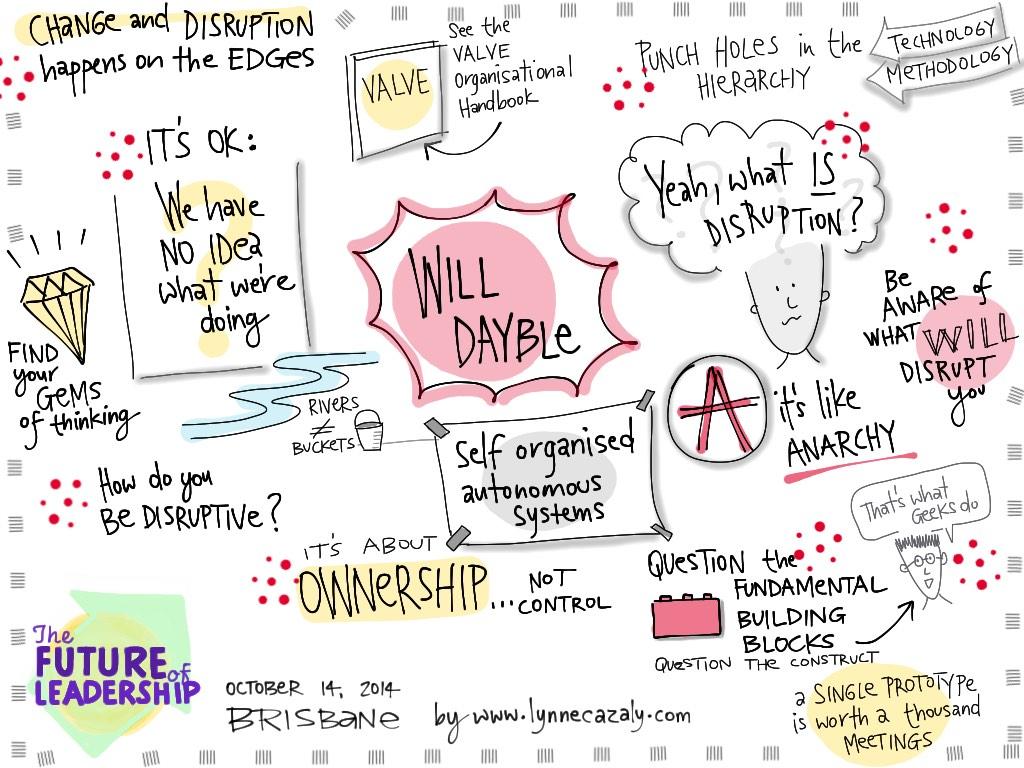 CHANGE and DISRUPTION
happens on the EDGES
VALVE
See the
VALVE
Organisational
Handbook
PUNCH HOLES in the
HIERARCHY
TECHNOLOGY
METHODOLOGY
IT'S OK:
We have
NO IDea
what we're
doing
?
WILL
DAYBLE
Yeah, what IS
DISRUPTION?
BE
AWARE of
WHAT WILL
DISRUPT
you
FIND
your
GEMS
of thinking
RIVERS
≠
BUCKETS
Self organised
autonomous
systems
A
it's like
ANARCHY
How do you
BE DISRUPTIVE?
IT'S ABOUT
OWNERSHIP... NOT
CONTROL
That's what
Geeks do
QUESTION the
FUNDAMENTAL
BUILDING
BLOCKS
QUESTION THE CONSTRUCT
The
FUTURE of
LEADERSHIP
OCTOBER 14, 2014
BRISBane
by www.lynnecazaly.com
a SINGLE PROTOTYPE
is worth a thousand
MEETINGS